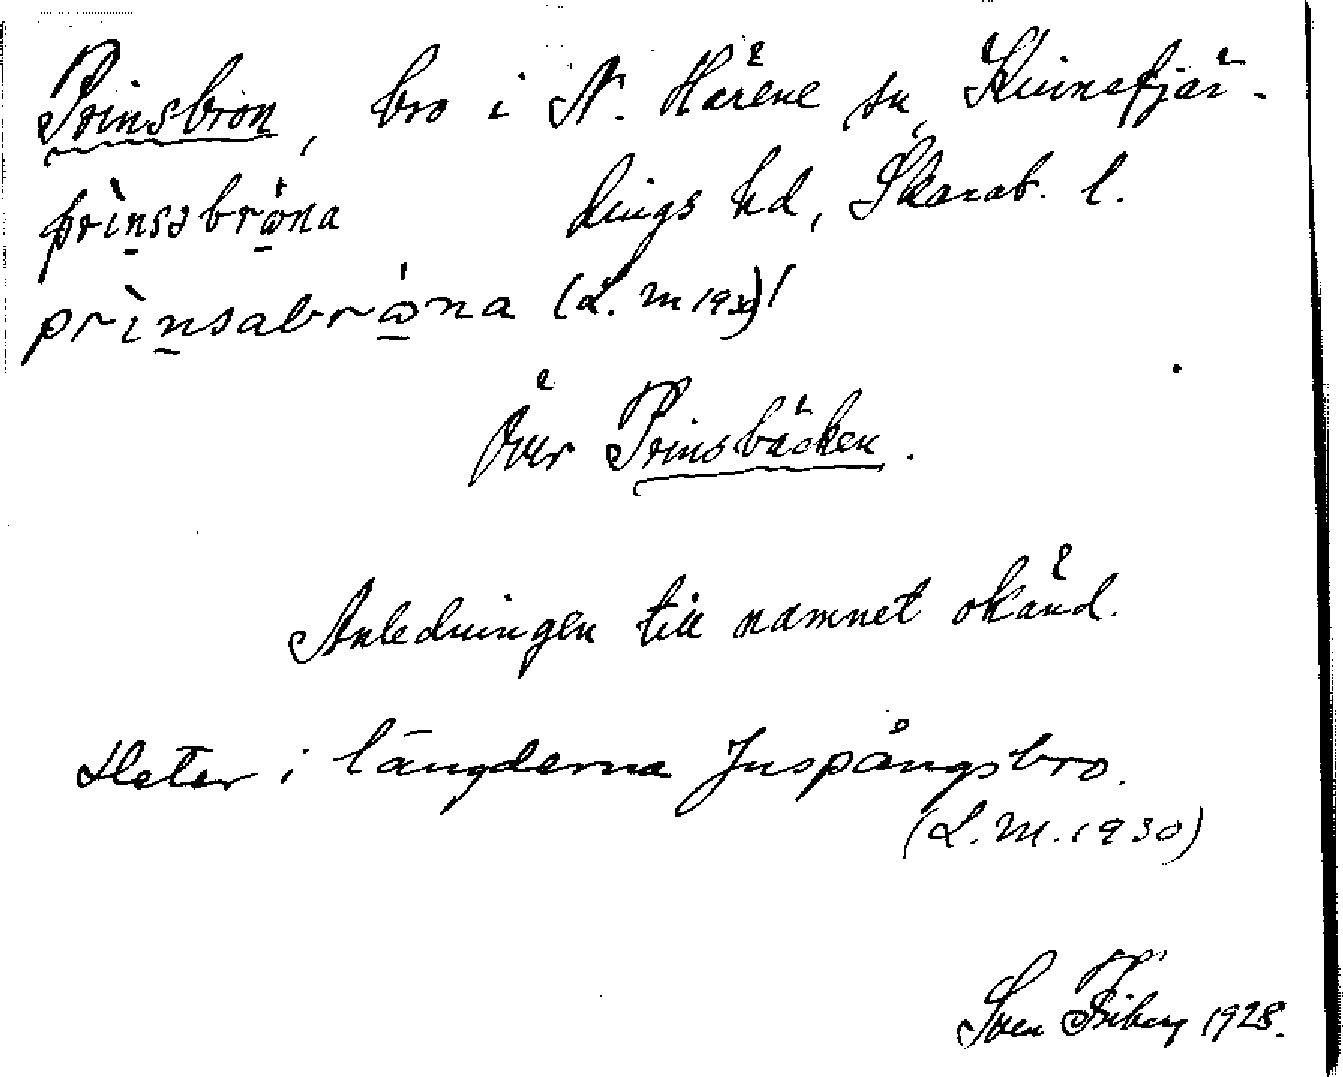 Prinsbron, bro i N. Härene sn, Kinnefjär-
prìnsabrọ́na dings hd, Skarab. l.
prìnsabrọ́na (L. M 1930)!
Över Prinsbäcken.
Anledningen till namnet okänd.
Heter i längderna Juspångsbro.
(L. M. 1930)
Sven Friberg 1928.